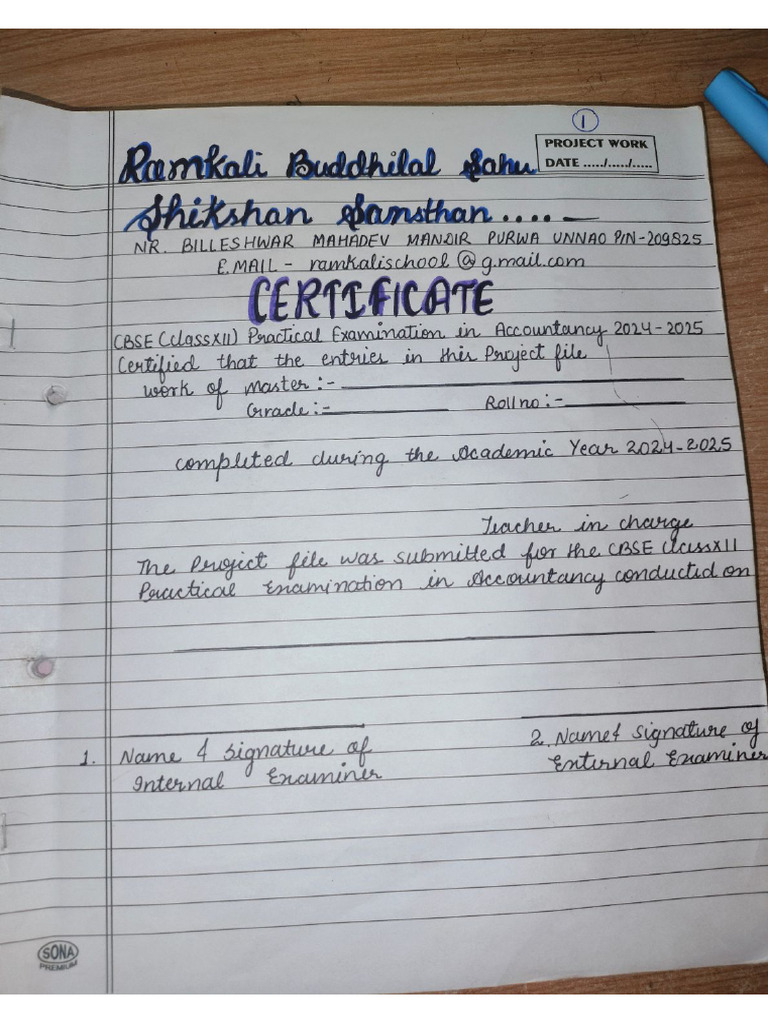 1
PROJECT WORK
DATE ...../...../.....
Ramkali Buddhilal Sahu
Shikshan Samsthan.....
NR. BILLESHWAR MAHADEV MANDIR PURWA UNNAO PIN-209825
E.MAIL - ramkalischool@g.mail.com
CERTIFICATE
CBSE (ClassXII) Practical Examination in Accountancy 2024-2025
Certified that the entries in this Project file
work of Master:-
Grade:- Rollno:-
completed during the Academic Year 2024-2025
Teacher in charge
The Project file was submitted for the CBSE ClassXII
Practical Examination in Accountancy conducted on
1. Name & signature of
Internal Examiner
2. Name & signature of
External Examiner
SONA
PREMIUM